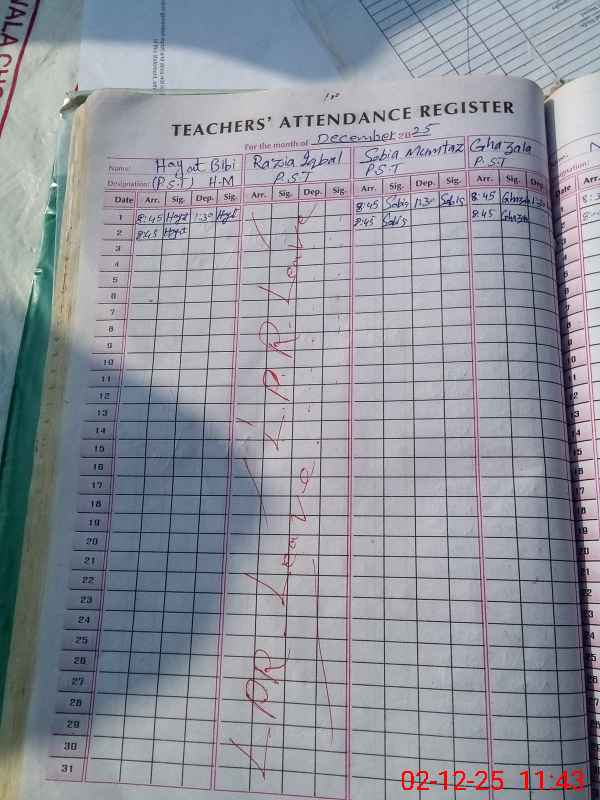 TEACHERS' ATTENDANCE REGISTER
For the month of December 2025
Name: Hayat Bibi Razia Iqbal Sobia Mumtaz Ghazala
Designation: (P.S.T) H-M P.S.T P.S.T P.S.T
Date Arr. Sig. Dep. Sig. Arr. Sig. Dep. Sig. Arr. Sig. Dep. Sig. Arr. Sig. Dep.
1 8:45 Hayat 1:30 Hayat 8:45 Sobia 1:30 Sobia 8:45 Ghazala 1:30
2 8:45 Hayat 8:45 Sobia 8:45 Ghazala
3
4
5
6
7
8
9
10
11
12
13
14
15
16
17
18
19
20
21
22
23
24
25
26
27
28
29
30
31
L.P.R. Leave
L.P.R. Leave
Date
1
2
3
4
5
6
7
8
9
10
11
12
13
14
15
16
17
18
19
20
21
22
23
24
25
26
27
28
29
30
31
02-12-25 11:43